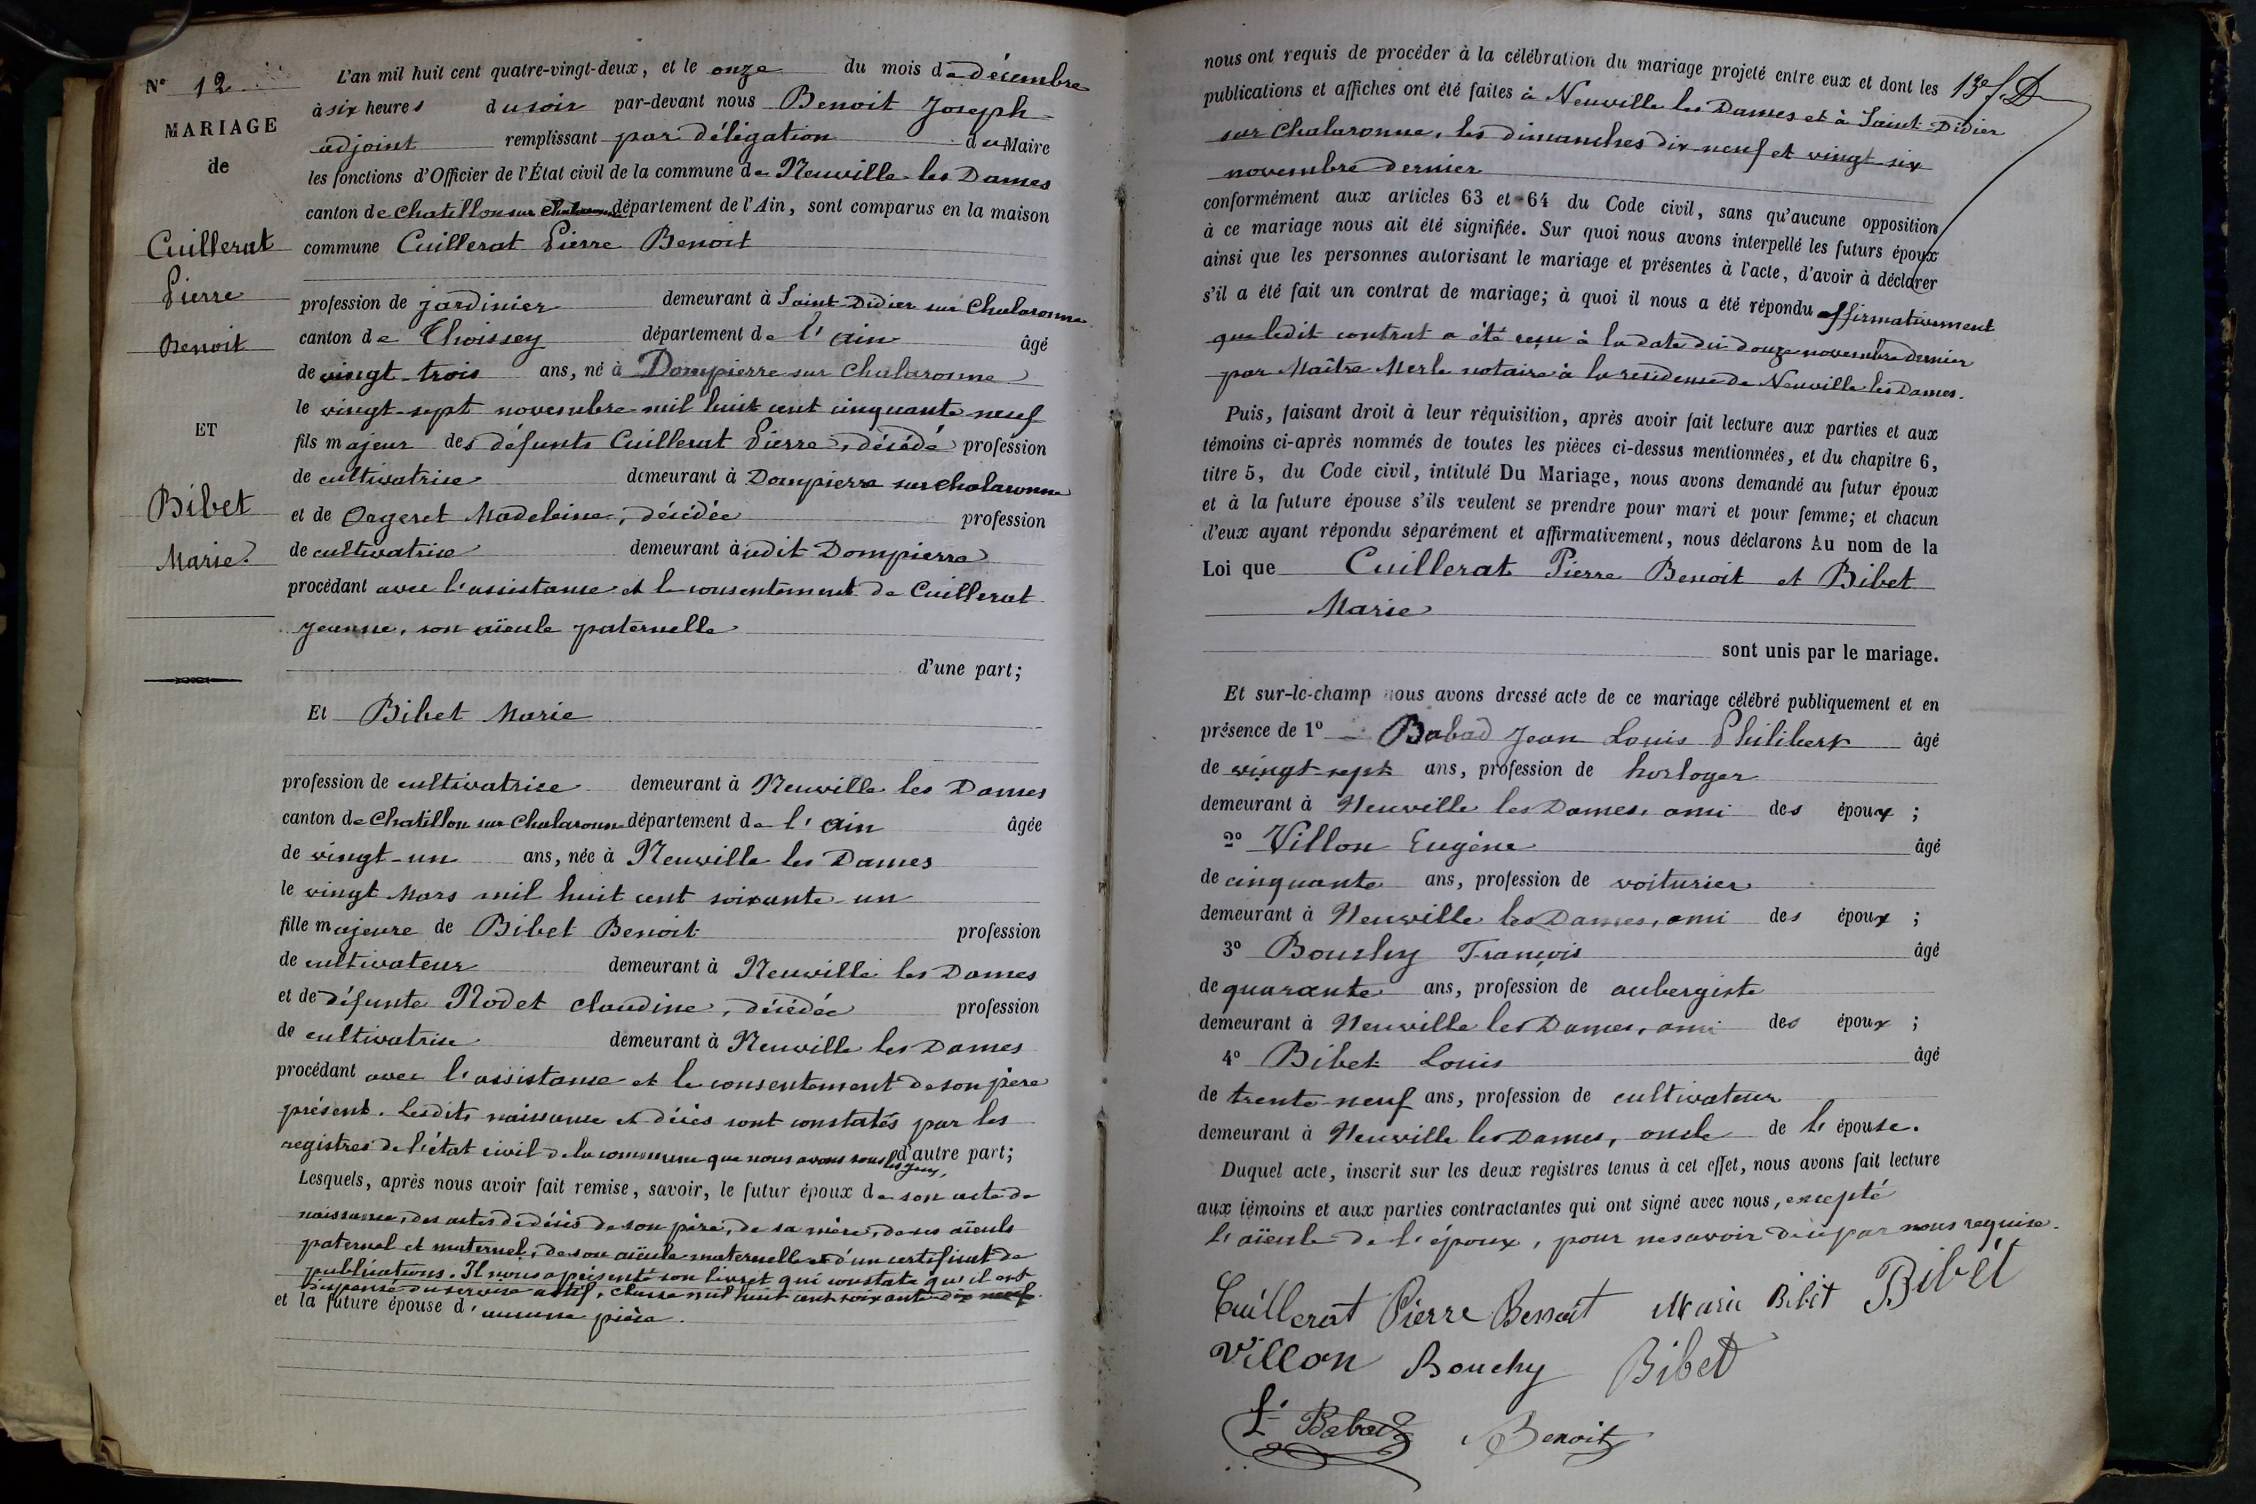 N° 12
MARIAGE
de
Cuillerat
Pierre
Benoit
ET
Bibet
Marie
L'an mil huit cent quatre-vingt-deux, et le onze du mois de décembre
à six heures du soir par-devant nous Benoit Joseph
adjoint remplissant par délégation du Maire
les fonctions d'Officier de l'État civil de la commune de Neuville les Dames
canton de Chatillon sur Chalaronne département de l'Ain, sont comparus en la maison
commune Cuillerat Pierre Benoit
profession de jardinier demeurant à Saint Didier sur Chalaronne
canton de Thoissey département de l'ain âgé
de vingt-trois ans, né à Dompierre sur Chalaronne
le vingt-sept novembre mil huit cent cinquante neuf
fils majeur des défunts Cuillerat Pierre, décédé profession
de cultivatrice demeurant à Dompierre sur Chalaronne
et de Orgeret Madeleine, décédée profession
de cultivatrice demeurant à udit Dompierre
procédant avec l'assistance et le consentement de Cuillerat
Jeanne, son aïeule paternelle
d'une part;
Et Bibet Marie
profession de cultivatrice demeurant à Neuville les Dames
canton de Chatillon sur Chalaronne département de l'ain âgée
de vingt-un ans, née à Neuville les Dames
le vingt Mars mil huit cent soixante-un
fille majeure de Bibet Benoit profession
de cultivateur demeurant à Neuville les Dames
et de défunte Nodet Claudine, décédée profession
de cultivatrice demeurant à Neuville les Dames
procédant avec l'assistance et le consentement de son père
présent. Lesdits naissance et décès sont constatés par les
registres de l'état civil de la commune que nous avons sous les yeux, d'autre part;
Lesquels, après nous avoir fait remise, savoir, le futur époux de son acte de
naissance, des actes de décès de son père, de sa mère, de ses aïeuls
paternel et maternel, de son aïeule maternelle et d'un certificat de
publications. Il nous a présenté son livret qui constate qu'il est
dispensé du service actif, classe mil huit cent soixante-dix neuf.
et la future épouse d'aucune pièce.
nous ont requis de procéder à la célébration du mariage projeté entre eux et dont les
publications et affiches ont été faites à Neuville les Dames et à Saint-Didier
sur Chalaronne, les dimanches dix-neuf et vingt-six
novembre dernier
conformément aux articles 63 et 64 du Code civil, sans qu'aucune opposition
à ce mariage nous ait été signifiée. Sur quoi nous avons interpellé les futurs époux
ainsi que les personnes autorisant le mariage et présentes à l'acte, d'avoir à déclarer
s'il a été fait un contrat de mariage; à quoi il nous a été répondu affirmativement
que ledit contrat a été reçu à la date du douze novembre dernier
par Maître Merle notaire à la résidence de Neuville les Dames.
Puis, faisant droit à leur réquisition, après avoir fait lecture aux parties et aux
témoins ci-après nommés de toutes les pièces ci-dessus mentionnées, et du chapitre 6,
titre 5, du Code civil, intitulé Du Mariage, nous avons demandé au futur époux
et à la future épouse s'ils veulent se prendre pour mari et pour femme; et chacun
d'eux ayant répondu séparément et affirmativement, nous déclarons Au nom de la
Loi que Cuillerat Pierre Benoit et Bibet
Marie
sont unis par le mariage.
Et sur-le-champ nous avons dressé acte de ce mariage célébré publiquement et en
présence de 1° Babad Jean Louis Philibert âgé
de vingt-sept ans, profession de horloger
demeurant à Neuville les Dames, ami des époux ;
2° Villon Eugène âgé
de cinquante ans, profession de voiturier
demeurant à Neuville les Dames, ami des époux ;
3° Bouchy François âgé
de quarante ans, profession de aubergiste
demeurant à Neuville les Dames, ami des époux ;
4° Bibet Louis âgé
de trente-neuf ans, profession de cultivateur
demeurant à Neuville les Dames, oncle de l'épouse.
Duquel acte, inscrit sur les deux registres tenus à cet effet, nous avons fait lecture
aux témoins et aux parties contractantes qui ont signé avec nous, excepté
l'aïeule de l'époux, pour ne savoir de ce par nous requise.
Cuillerat Pierre Benoit Marie Bibet Bibet
Villon Bouchy Bibet
Babad Benoit